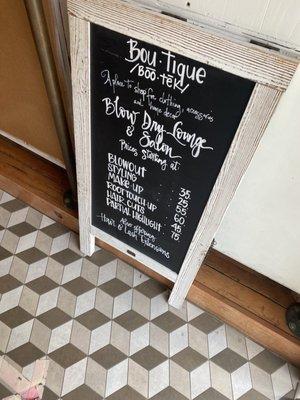 Bou·tique
/Boo·tek/
A place to shop for clothing, accessories
and home decor
Blow Dry Lounge
& Salon
Prices Starting at:
BLOWOUT 35
STYLING 25
MAKE UP 55
ROOT TOUCH UP 60
HAIR CUTS 45
PARTIAL HIGHLIGHT 75
Also offering
Hair & Lash Extensions